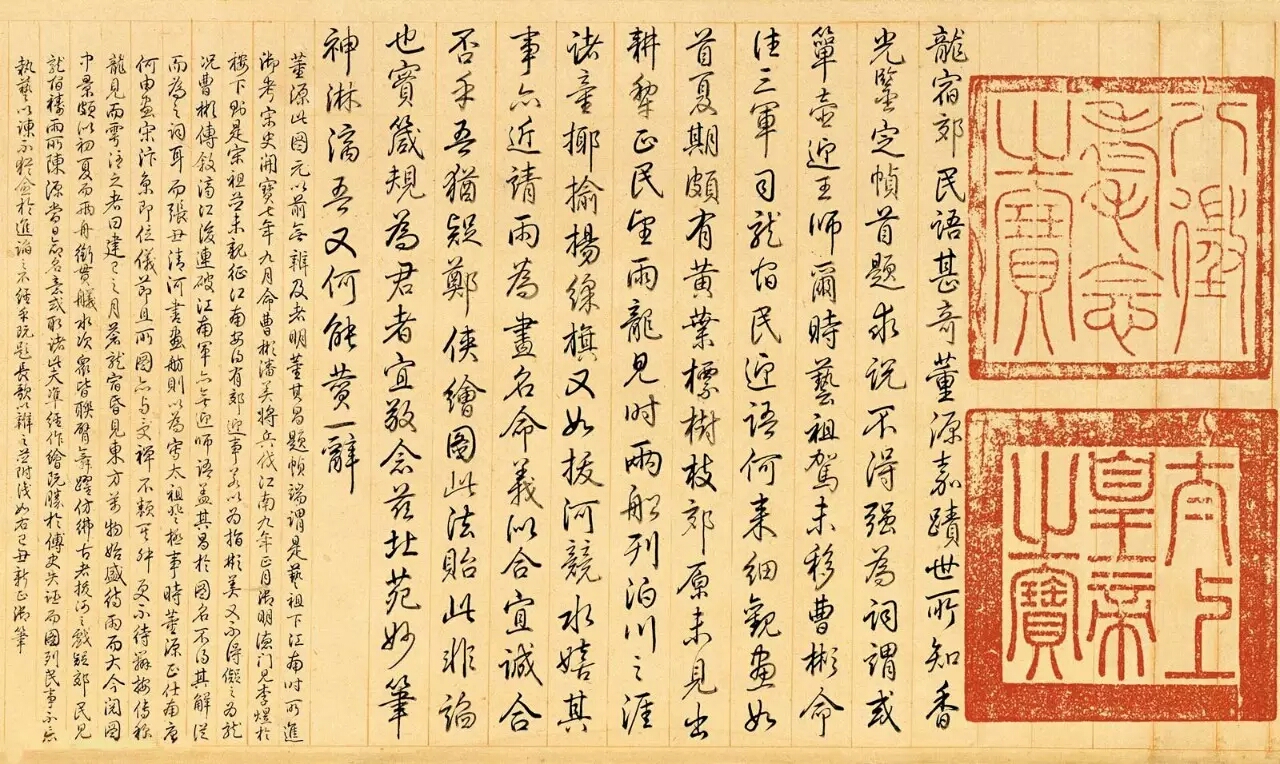 八徵耄念之寶
太上皇帝之寶
龍宿郊民語甚奇董源嘉蹟世所知香
光鑒定幀首題求說不得强為詞謂或
箪壺迎王師爾時藝祖駕未移曹彬命
往三軍司龍宿民迎語何来細觀畫如
首夏期頗有黃葉標樹枝郊原未見出
耕犂正民望雨龍見時兩船列泊川之涯
諸童揶揄楊綵旗又如拔河競水嬉其
事亦近請雨為畫名命義似合宜誠合
否乎吾猶疑鄭俠繪圖此法貽此非諂
也實箴規為君者宜敬念茲北苑妙筆
神淋漓吾又何能贊一辭
董源此圖元以前無辨及者明董其昌題幀端謂是藝祖下江南時所進
御者宋史開寶七年九月命曹彬潘美將兵伐江南九年正月御明德門見李煜於
樓下則是宋祖並未親征江南安得有郊迎事若以為指彬美又不得儗之為龍
況曹彬傳敘濟江後連破江南軍亦無迎師語蓋其昌於圖名不得其解從
而為之詞耳而張丑清河書畫舫則以為寫太祖登極事時董源正仕南唐
何由畫宋汴京即位儀節且所圖亦与受禪不類其舛更不待辯按傳稱
龍見而雩注之者曰建巳之月蒼龍宿昏見東方萬物始盛待雨而大今閱圖
中景頗似初夏而兩舟銜貫艤水次衆皆聯臂舞躍仿彿古者拔河之戲疑郊民見
龍宿禱雨所陳源當日命名意或取諸此夫準經作繪既勝於傅史失证而圖列民事亦
執藝以諫不猶愈於進諂之不經乎既題長歌以辯之並附識如右己丑新正御筆